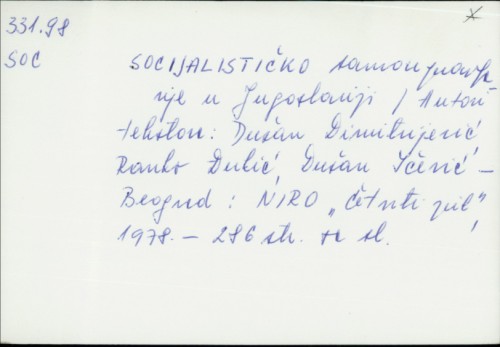 331.98
SOC
SOCIJALISTIČKO samoupravlja-
nje u Jugoslaviji / Autori
tekstova: Dušan Dimitrijević,
Ranko Đukić, Dušan Ičević –
Beograd : NIRO „Četvrti jul"
1978. – 286 str. sl.